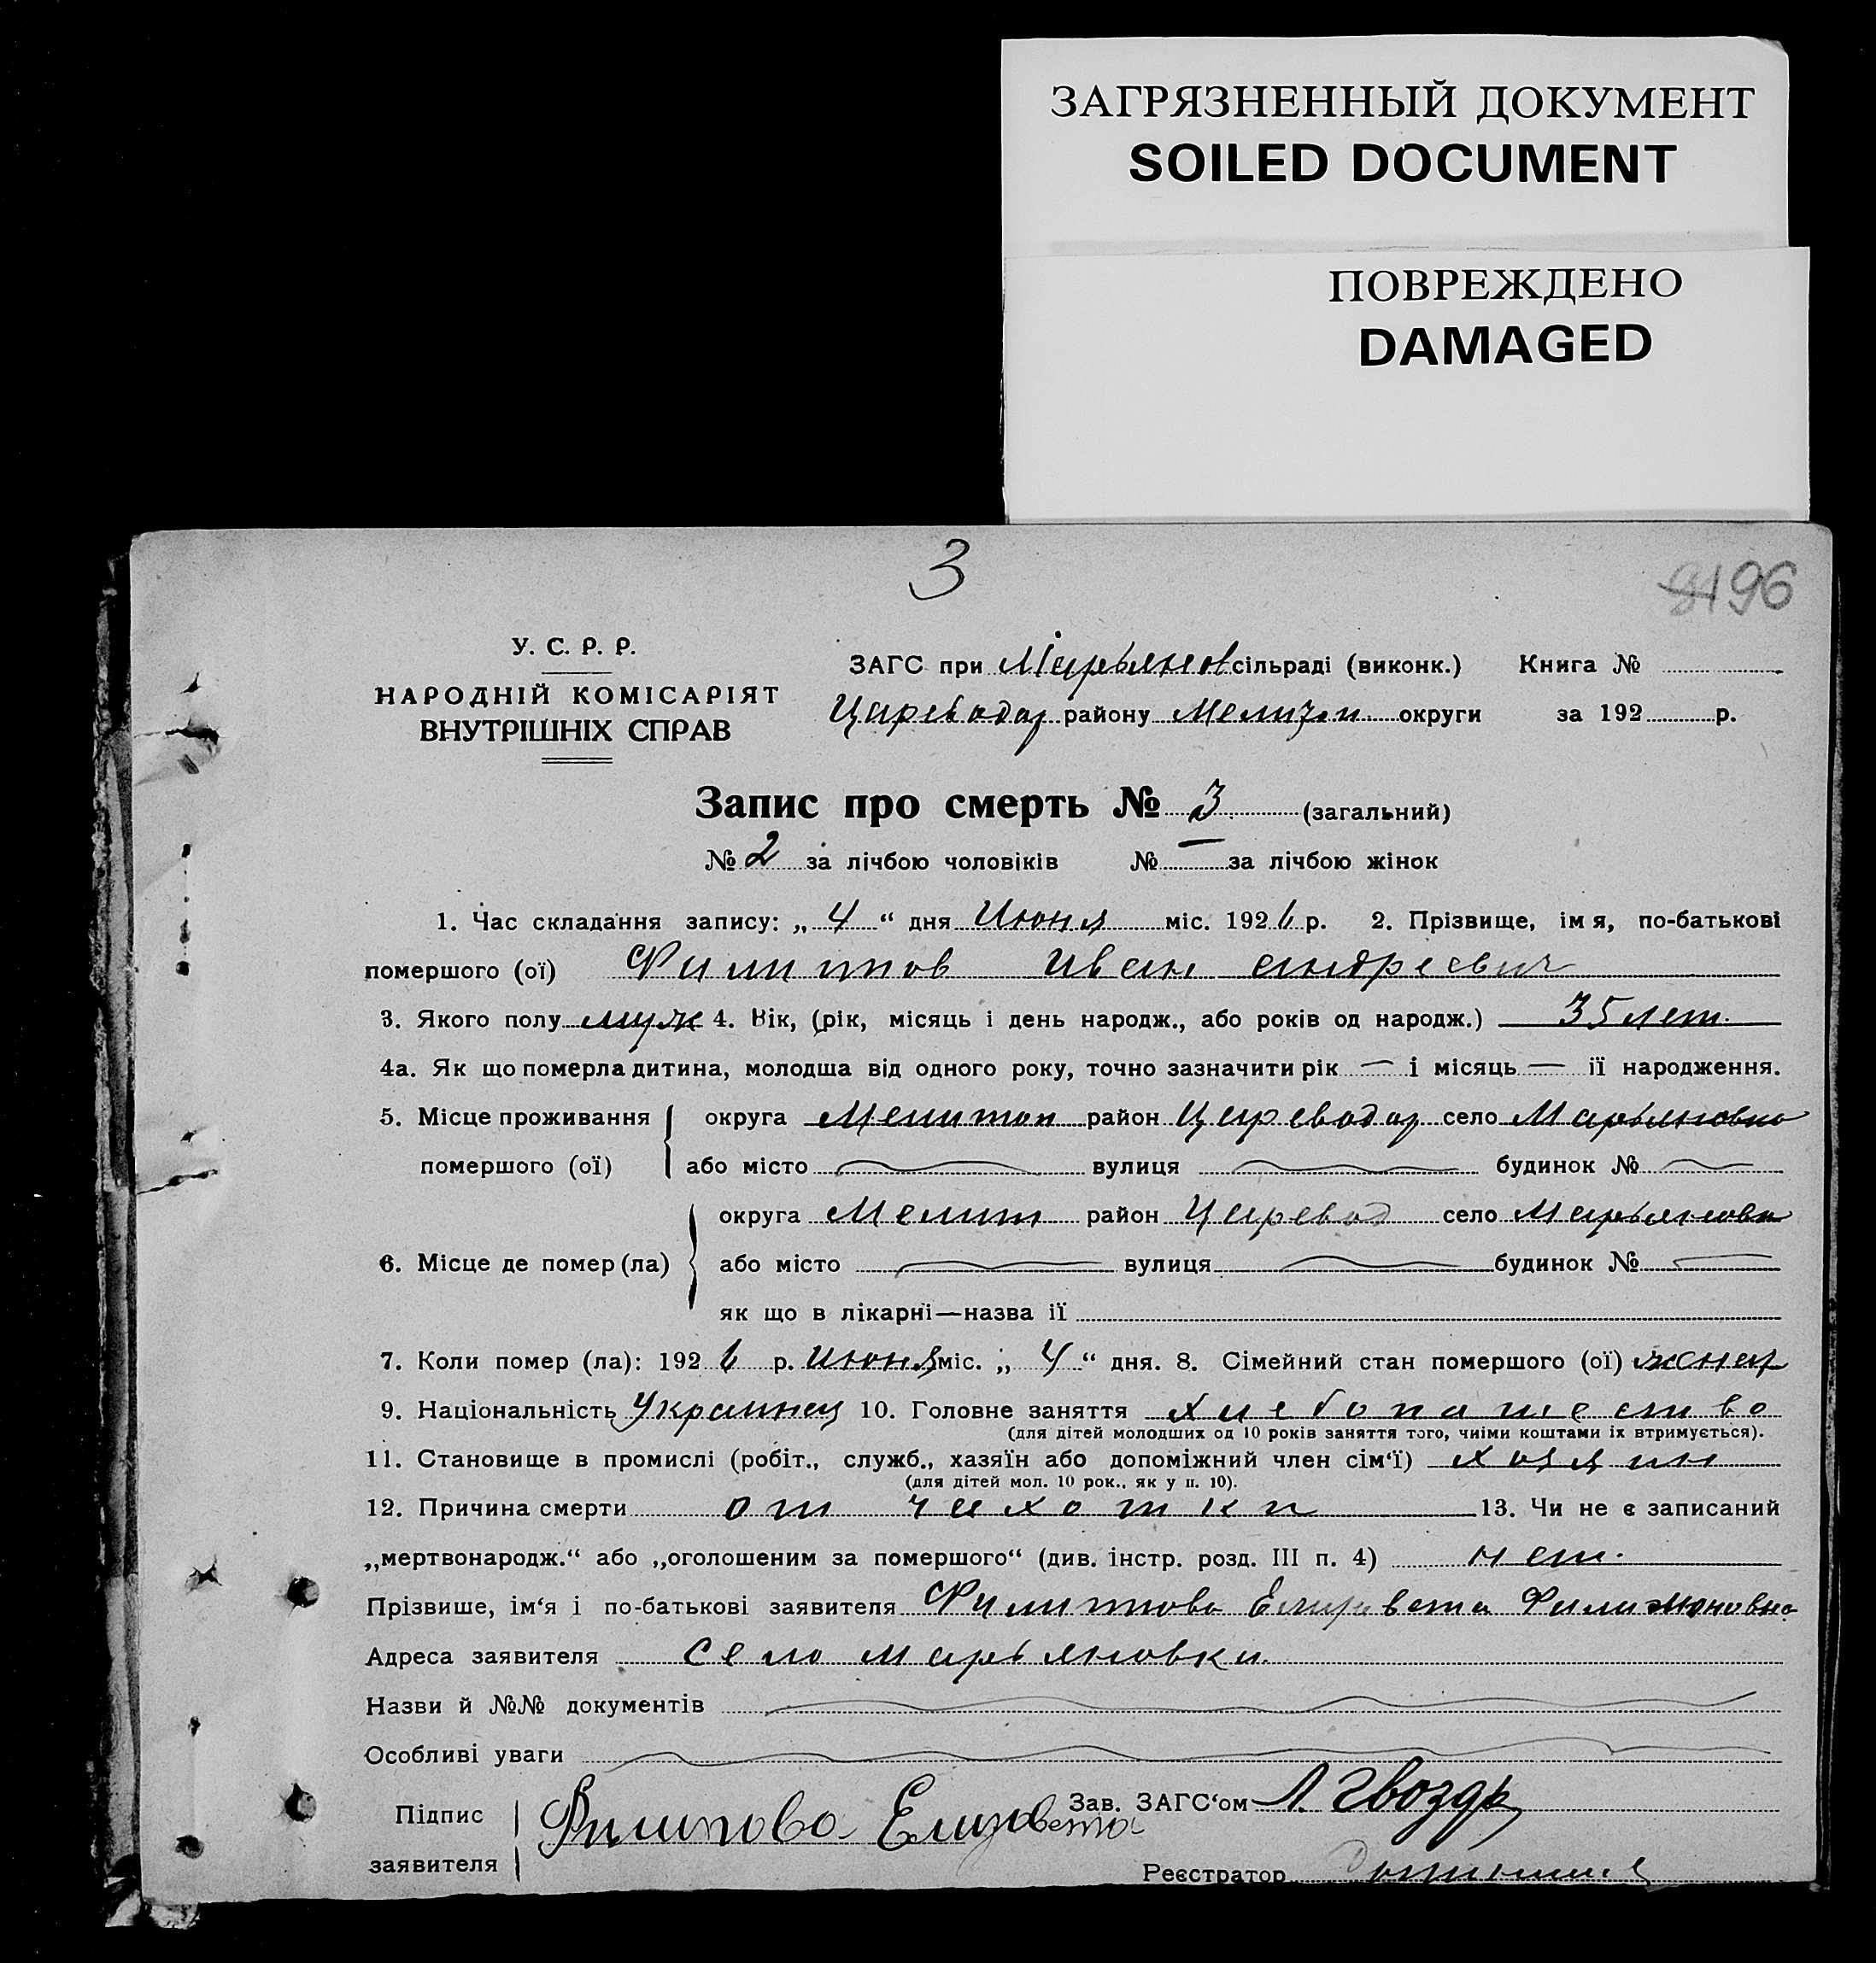 ЗАГРЯЗНЕННЫЙ ДОКУМЕНТ
SOILED DOCUMENT
ПОВРЕЖДЕНО
DAMAGED
3
96
У. С. Р. Р.
НАРОДНІЙ КОМІСАРІЯТ
ВНУТРІШНІХ СПРАВ
ЗАГС при Марьянов сільраді (виконк.) Книга №
Царевода району Мелитоп. округи за 192 р.
Запис про смерть № 3 (загальний)
№ 2 за лічбою чоловіків № — за лічбою жінок
1. Час складання запису: „ 4 “ дня Июня міс. 1926 р. 2. Прізвище, імя, по-батькові
помершого (ої) Филиппов Иван Андреевич
3. Якого полу муж 4. Вік, (рік, місяць і день народж., або років од народж.) 35 лет.
4а. Як що померла дитина, молодша від одного року, точно зазначити рік — і місяць — ії народження.
5. Місце проживання округа Мелитоп район Царевода село Марьяновка
помершого (ої) або місто вулиця будинок №
округа Мелит район Царевод село Марьяновка
6. Місце де помер (ла) або місто вулиця будинок №
як що в лікарні—назва ії
7. Коли помер (ла): 1926 р. Июня міс. „ 4 “ дня. 8. Сімейний стан помершого (ої) женат
9. Національність Украинец 10. Головне заняття хлебопашество
(для дітей молодших од 10 років заняття того, чиїми коштами їх втримується).
11. Становище в промислі (робіт., служб., хазяїн або допоміжний член сім‘ї) хозяин
(для дітей мол. 10 рок., як у п. 10).
12. Причина смерти от чахотки 13. Чи не є записаний
„мертвонародж.“ або „оголошеним за помершого“ (див. інстр. розд. III п. 4) нет.
Прізвише, ім‘я і по-батькові заявителя Филиппова Елизавета Филимоновна
Адреса заявителя село Марьяновки.
Назви й №№ документів
Особливі уваги
Підпис
заявителя
Филипова Елизавета
Зав. ЗАГС‘ом Л. Гвоздь
Реєстратор